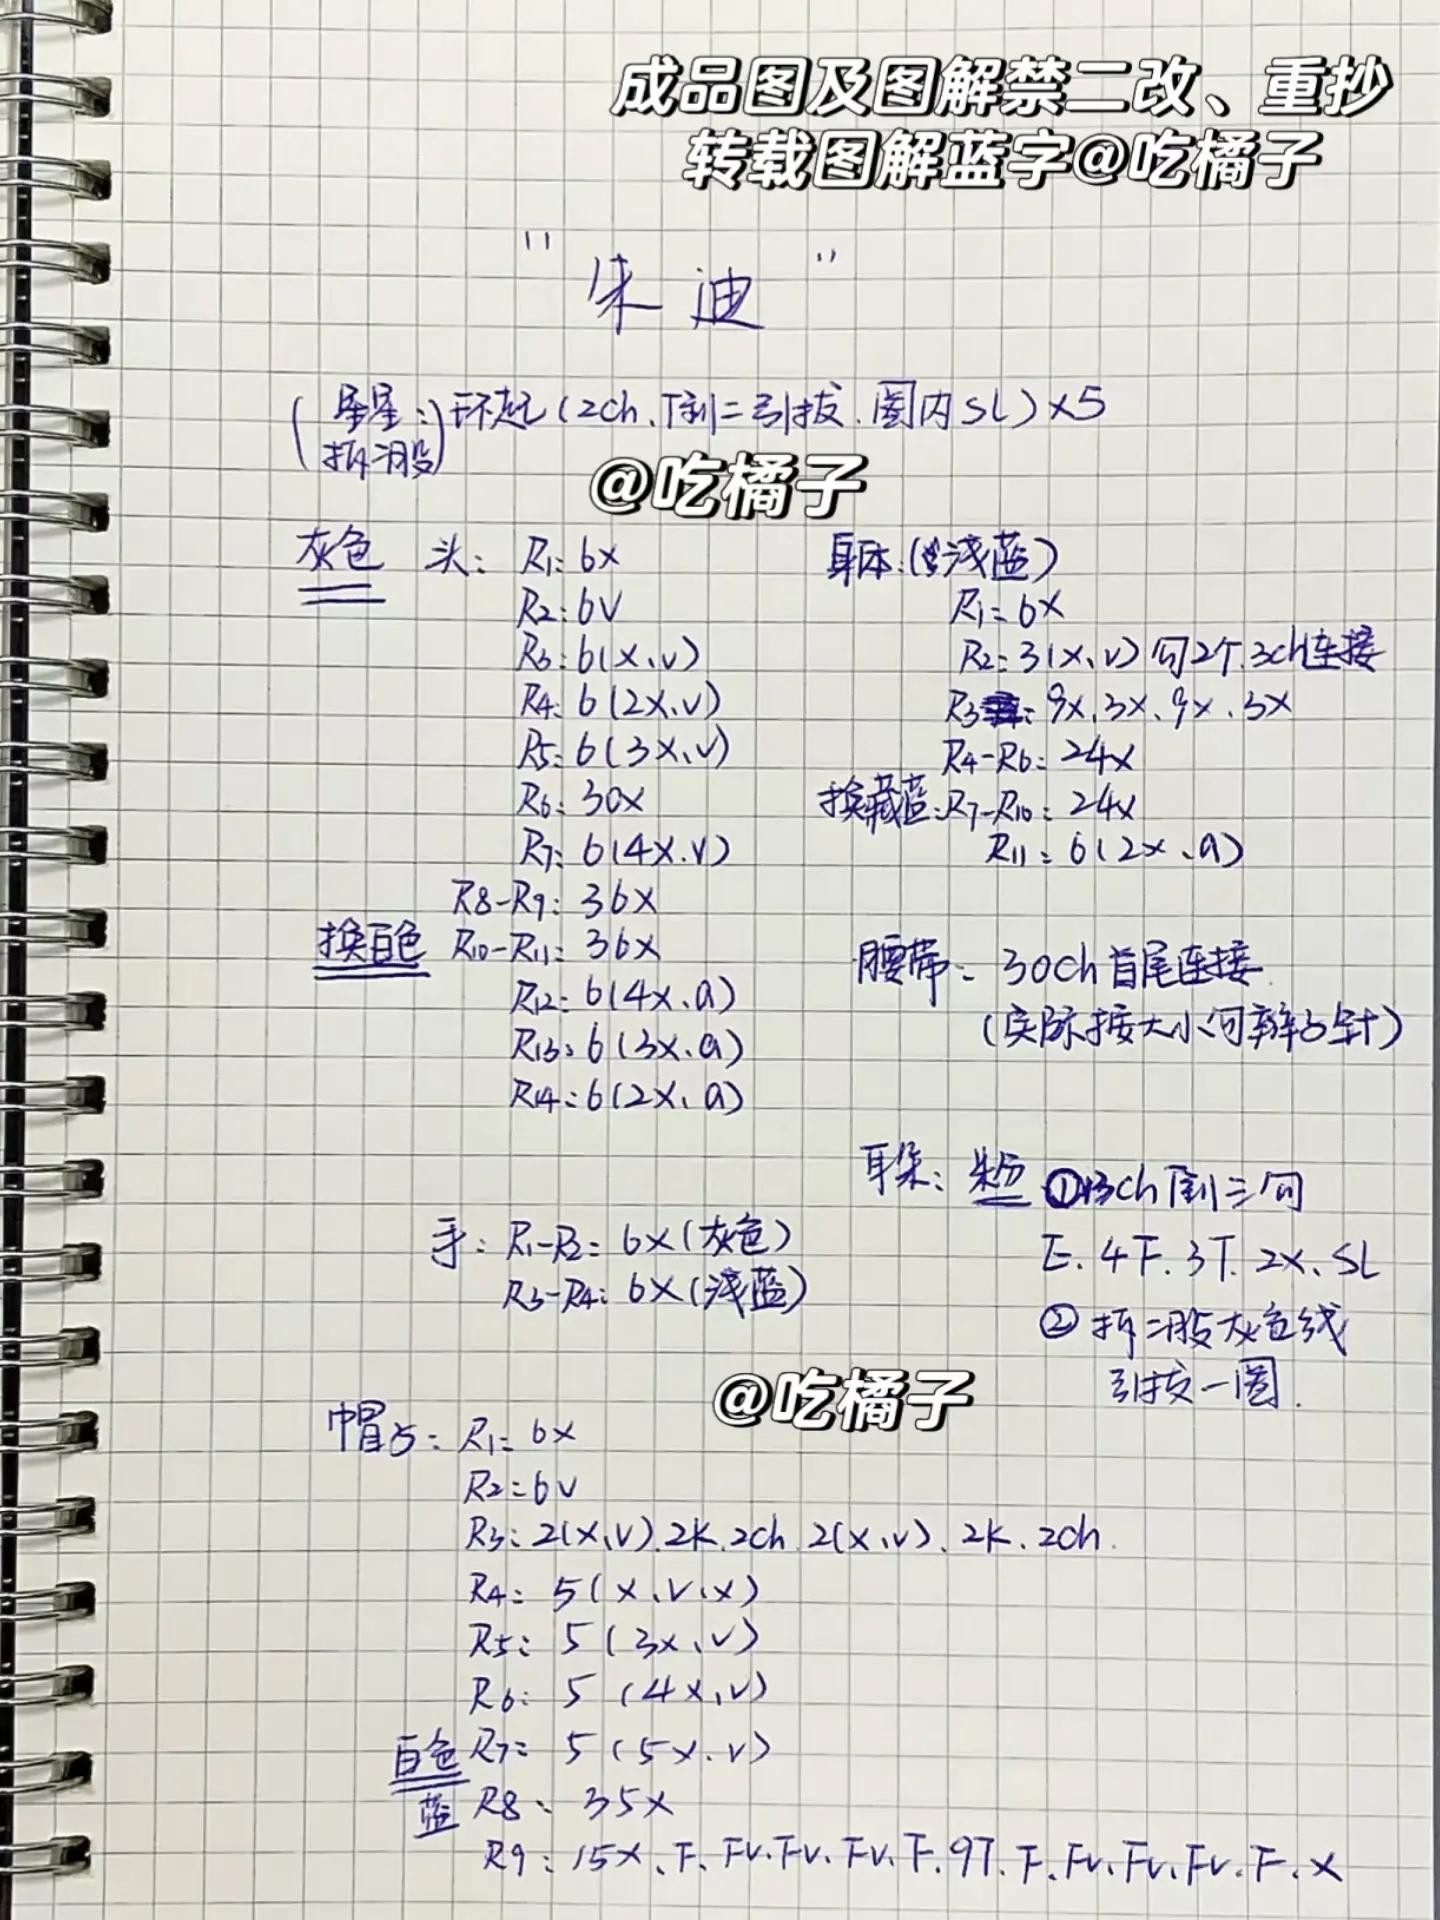 成品图及图解禁二改、重抄
转载图解蓝字@吃橘子
"朱迪"
(星星:环起(2ch、T倒二引拔.圈内SL)×5
拆2股)
@吃橘子
灰色 头: R1: 6x
R2: 6V
R3: 6(x、v)
R4: 6(2x、v)
R5: 6(3x、v)
R6: 30x
R7: 6(4x.v)
R8-R9: 36x
换白色 R10-R11: 36x
R12: 6(4x、a)
R13: 6(3x、a)
R14: 6(2x、a)
身体:(浅蓝)
R1= 6x
R2= 3(x、v)勾2个.3ch连接
R3: 9x.3x、9x.3x
R4-R6: 24x
换藏蓝:R7-R10: 24x
R11= 6(2x、a)
腰带: 30ch首尾连接
(实际按大小勾辫子针)
耳朵: 粉 ①13ch倒三勾
E、4F.3T.2x、SL
②拆2股灰色线
引拔一圈.
手: R1-R2= 6x(灰色)
R3-R4: 6x(浅蓝)
@吃橘子
帽子: R1= 6x
R2=6v
R3: 2(x、v).2K.2ch.2(x、v).2K.2ch.
R4: 5(x、v、x)
R5: 5(3x、v)
R6: 5(4x、v)
白色 R7= 5(5x.v)
蓝 R8: 35x
R9: 15x、F.Fv.Fv.Fv.F.9T.F.Fv.Fv.Fv.F.x